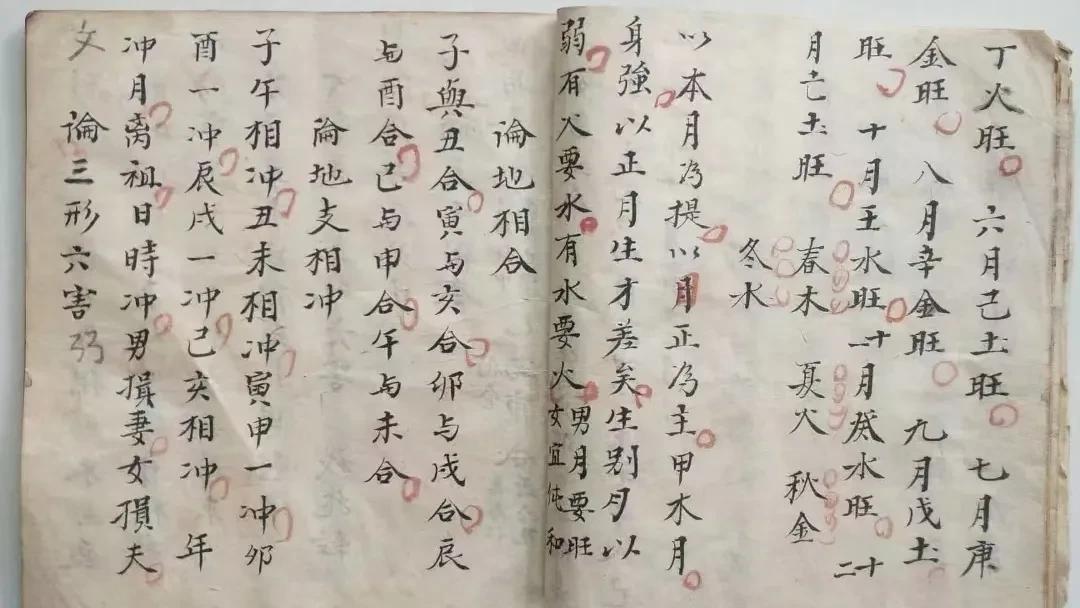 丁火旺 六月己土旺 七月庚
金旺 八月辛金旺 九月戊土
旺 十月壬水旺 十一月癸水旺 十二
月己土旺 春木 夏火 秋金
冬水
以本月為提以月正為主甲木月
身強以正月生才差矣生别月以
弱有火要水有水要火 男月要旺
女宜纯和
論地相合
子與丑合寅与亥合卯与戌合辰
与酉合巳与申合午与未合
論地支相冲
子午相冲丑未相冲寅申一冲卯
酉一冲辰戌一冲巳亥相冲 年
冲月离祖日時冲男損妻女損夫
文 論三形六害